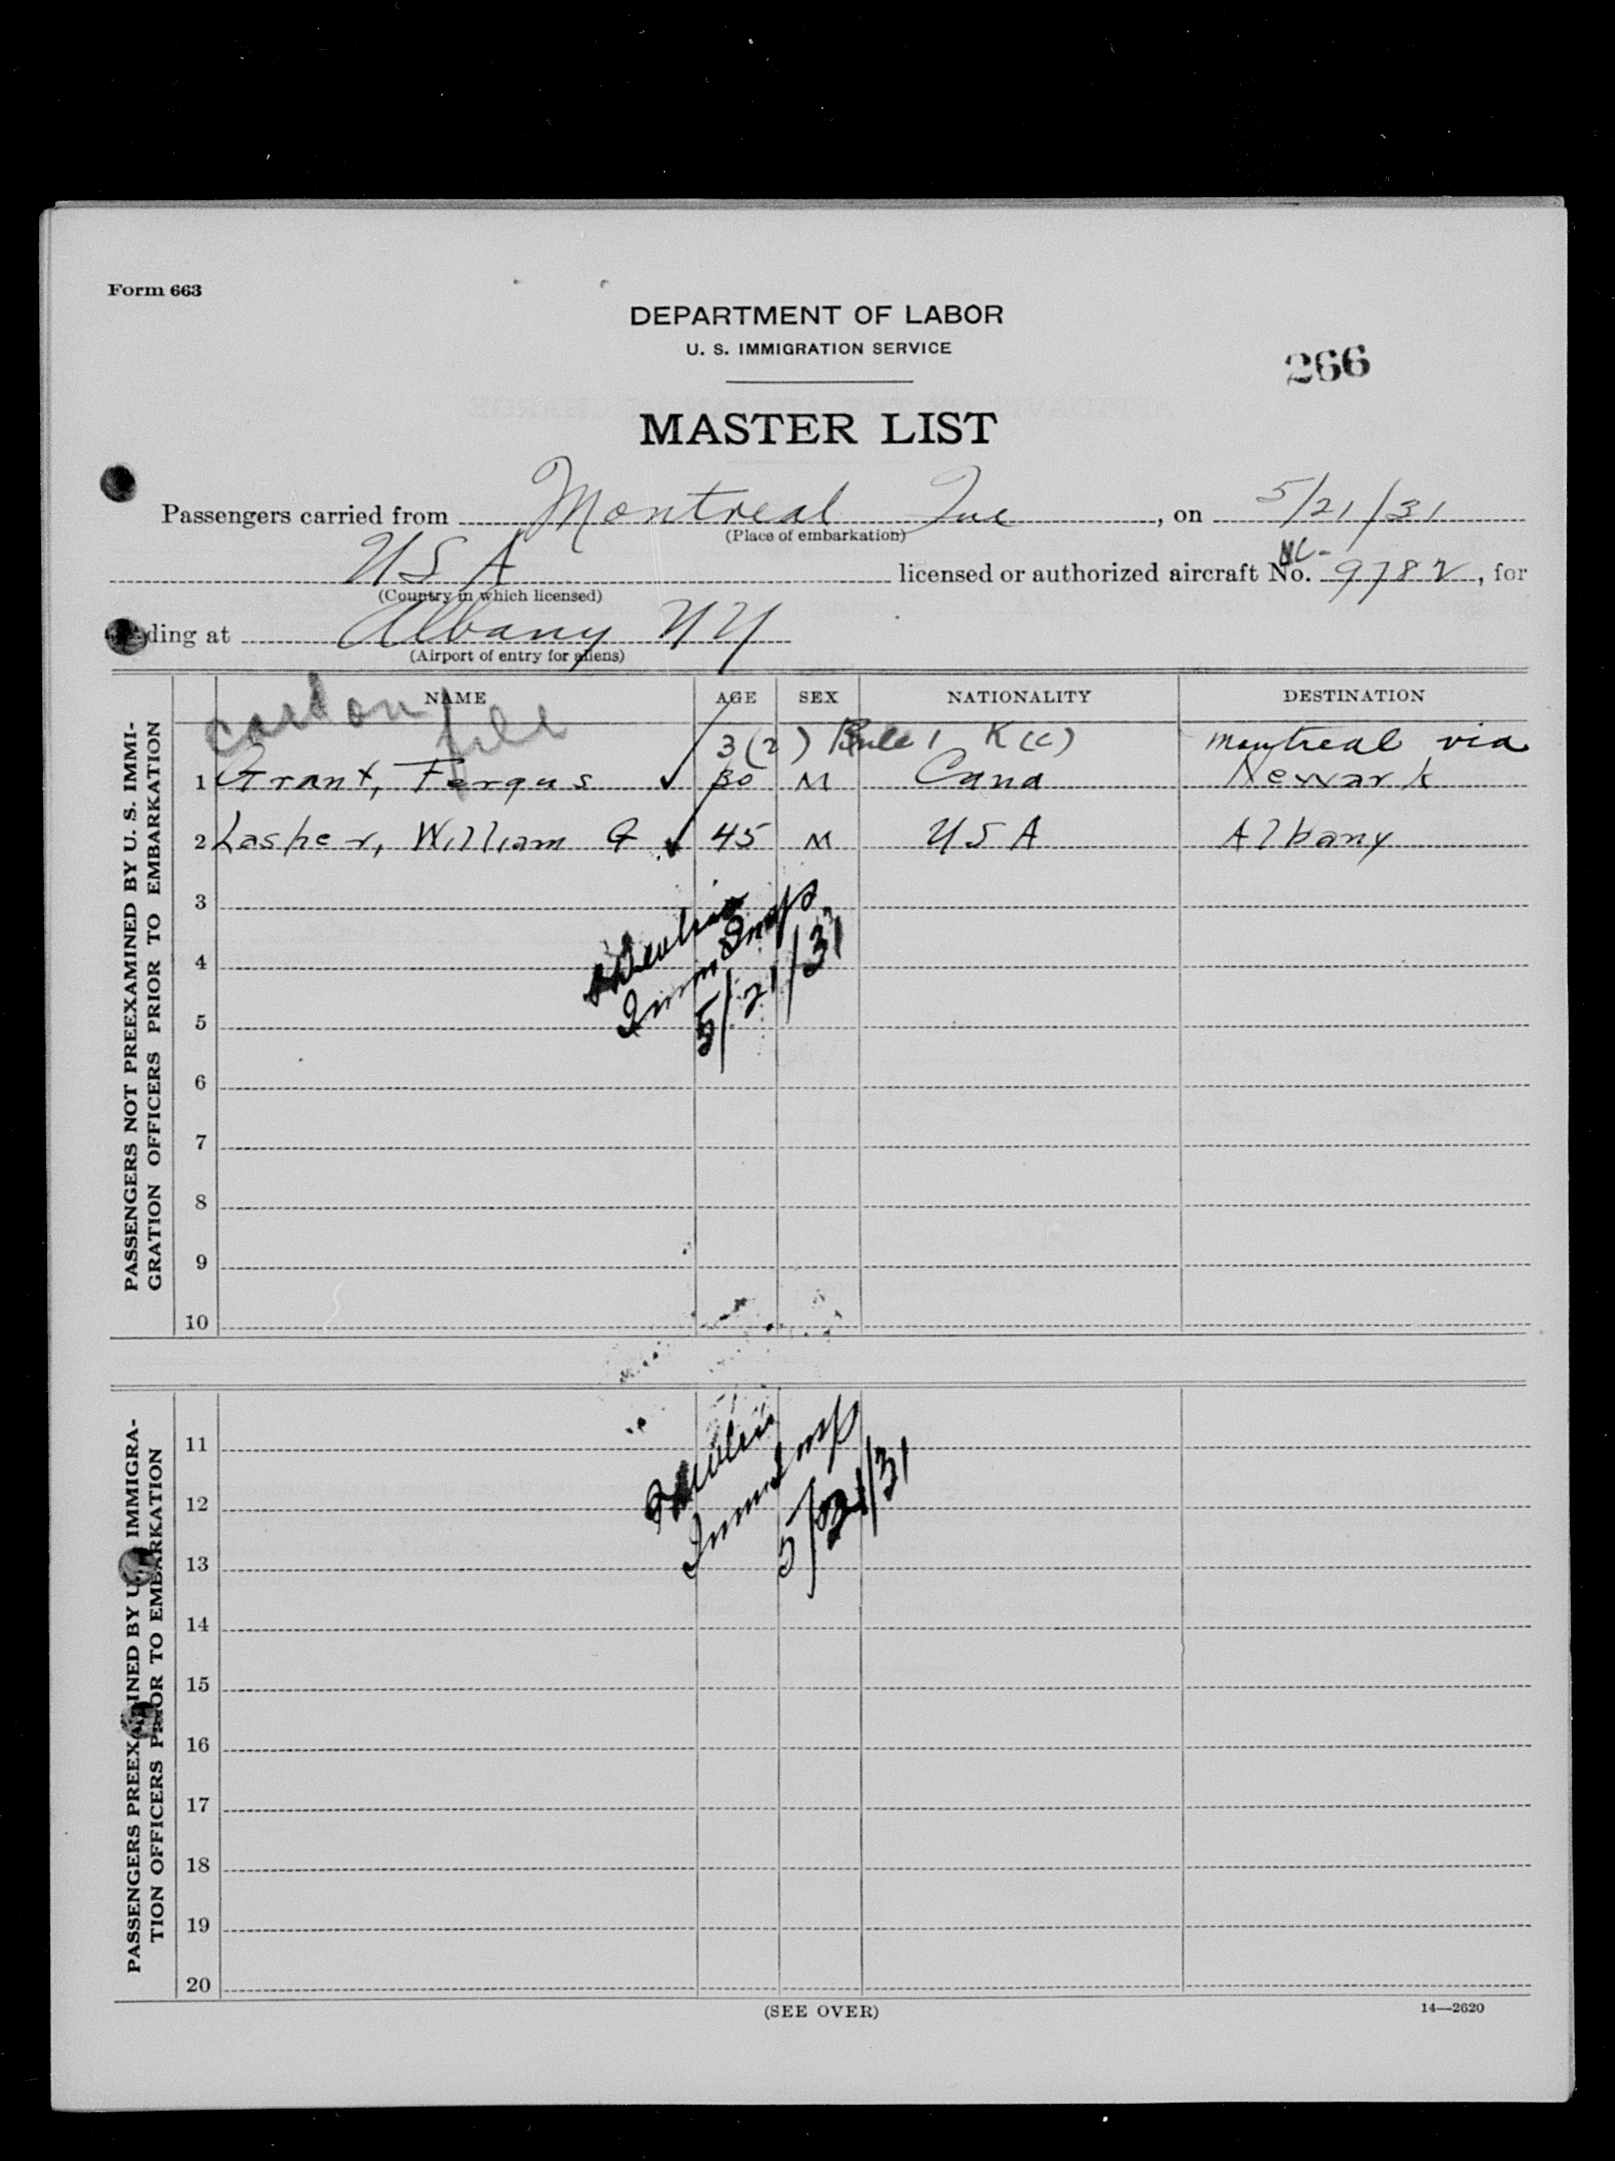 Form 663
DEPARTMENT OF LABOR
U. S. IMMIGRATION SERVICE
266
MASTER LIST
Passengers carried from Montreal Que, on 5/21/31
(Place of embarkation)
USA licensed or authorized aircraft No. NC-9782, for
(Country in which licensed)
ding at Albany NY
(Airport of entry for aliens)
NAME AGE SEX NATIONALITY DESTINATION
carbon file
3(2) Rule 1 K(c) Montreal via
1 Grant, Fergus 30 M Cana Newark
2 Lasher, William G 45 M USA Albany
3
4
5
6
7
8
9
10
Imm Insp
5/21/31
PASSENGERS NOT PREEXAMINED BY U. S. IMMI-
GRATION OFFICERS PRIOR TO EMBARKATION
11
12
13
14
15
16
17
18
19
20
Imm Insp
5/21/31
PASSENGERS PREEXAMINED BY U. S. IMMIGRA-
TION OFFICERS PRIOR TO EMBARKATION
(SEE OVER)
14—2620